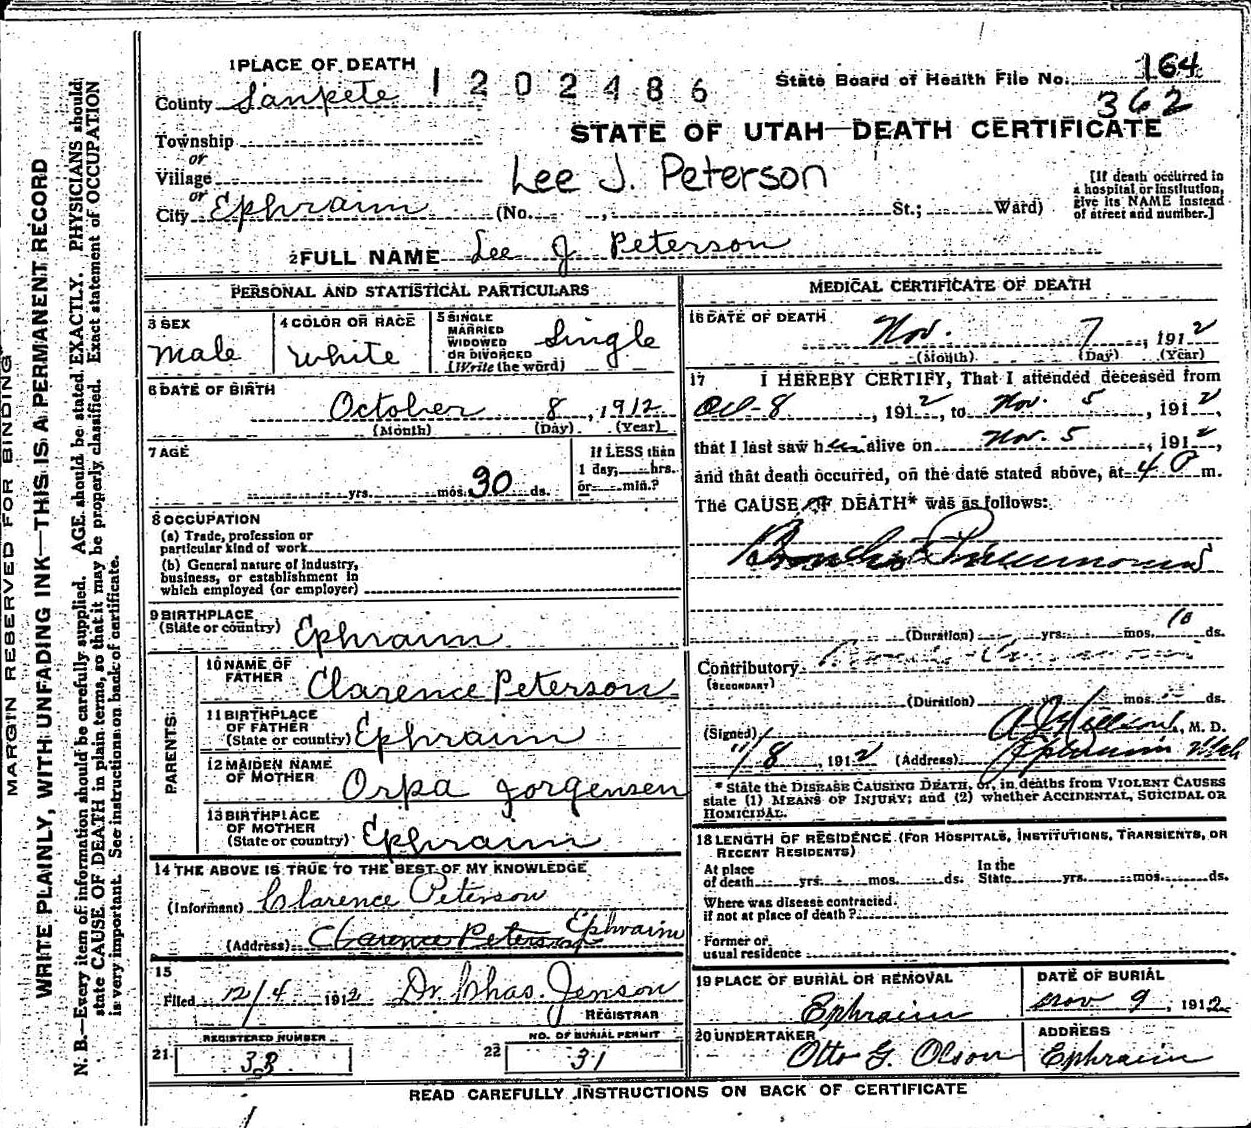 1 PLACE OF DEATH
1202486
State Board of Health File No. 164
362
County Sanpete
STATE OF UTAH—DEATH CERTIFICATE
Township
or
Village
Lee J. Peterson
or
City Ephraim (No. , St.; Ward)
[If death occurred in
a hospital or institution,
give its NAME instead
of street and number.]
2 FULL NAME Lee J Peterson
PERSONAL AND STATISTICAL PARTICULARS
3 SEX
Male
4 COLOR OR RACE
White
5 SINGLE
MARRIED
WIDOWED
OR DIVORCED
(Write the word)
Single
6 DATE OF BIRTH
October 8, 1912
(Month) (Day) (Year)
7 AGE
yrs. mos. 30 ds.
If LESS than
1 day, hrs.
or min.?
8 OCCUPATION
(a) Trade, profession or
particular kind of work
(b) General nature of industry,
business, or establishment in
which employed (or employer)
9 BIRTHPLACE
(State or country) Ephraim
PARENTS
10 NAME OF
FATHER Clarence Peterson
11 BIRTHPLACE
OF FATHER
(State or country) Ephraim
12 MAIDEN NAME
OF MOTHER Orpa Jorgensen
13 BIRTHPLACE
OF MOTHER
(State or country) Ephraim
14 THE ABOVE IS TRUE TO THE BEST OF MY KNOWLEDGE
(Informant) Clarence Peterson
(Address) Clarence Peterson Ephraim
15
Filed 12/4 1912 Dr. Chas. Jenson
REGISTRAR
REGISTERED NUMBER
21 33
NO. OF BURIAL PERMIT
22 31
MEDICAL CERTIFICATE OF DEATH
16 DATE OF DEATH
Nov. 7, 1912
(Month) (Day) (Year)
17 I HEREBY CERTIFY, That I attended deceased from
Oct-8, 1912, to Nov. 5, 1912,
that I last saw h alive on Nov. 5, 1912,
and that death occurred, on the date stated above, at 4 m.
The CAUSE OF DEATH* was as follows:
Broncho Pneumonia
(Duration) yrs. mos. 10 ds.
Contributory
(SECONDARY)
(Duration) mos. ds.
(Signed) M. D.
11/8, 1912 (Address) Ephraim Utah
* State the DISEASE CAUSING DEATH, or, in deaths from VIOLENT CAUSES
state (1) MEANS OF INJURY; and (2) whether ACCIDENTAL, SUICIDAL OR
HOMICIDAL.
18 LENGTH OF RESIDENCE (FOR HOSPITALS, INSTITUTIONS, TRANSIENTS, OR
RECENT RESIDENTS)
At place
of death yrs. mos. ds.
In the
State yrs. mos. ds.
Where was disease contracted,
if not at place of death?
Former or
usual residence
19 PLACE OF BURIAL OR REMOVAL
Ephraim
DATE OF BURIAL
Nov 9, 1912
20 UNDERTAKER
Otto G. Olson
ADDRESS
Ephraim
READ CAREFULLY INSTRUCTIONS ON BACK OF CERTIFICATE
MARGIN RESERVED FOR BINDING
WRITE PLAINLY, WITH UNFADING INK—THIS IS A PERMANENT RECORD
N. B.—Every item of information should be carefully supplied. AGE should be stated EXACTLY. PHYSICIANS should
state CAUSE OF DEATH in plain terms, so that it may be properly classified. Exact statement of OCCUPATION
is very important. See instructions on back of certificate.